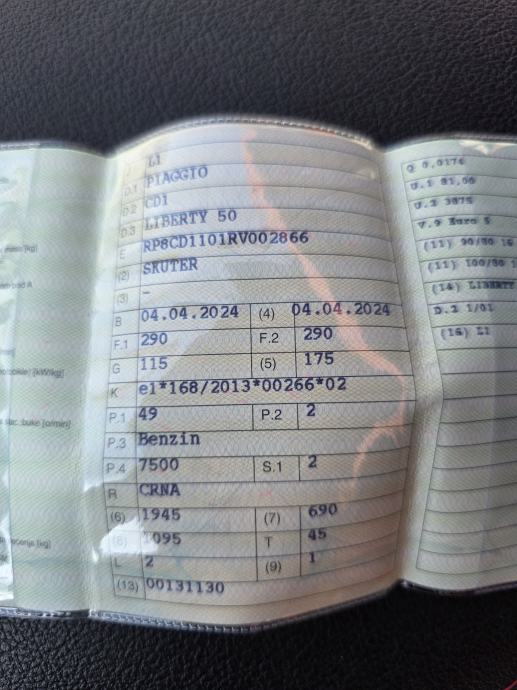 J L1
D.1 PIAGGIO
D.2 CD1
D.3 LIBERTY 50
E RP8CD1101RV002866
(2) SKUTER
(3) -
B 04.04.2024 (4) 04.04.2024
F.1 290 F.2 290
G 115 (5) 175
K e1*168/2013*00266*02
P.1 49 P.2 2
P.3 Benzin
P.4 7500 S.1 2
R CRNA
(6) 1945 (7) 690
(8) 1095 T 45
L 2 (9) 1
(13) 00131130
Q 0,0176
U.1 81,00
U.2 3875
V.9 Euro 5
(11) 90/80 16
(11) 100/80 1
(14) LIBERTY
D.2 1/01
(16) L1
[kg]
[kW/kg]
[o/min]
[kg]